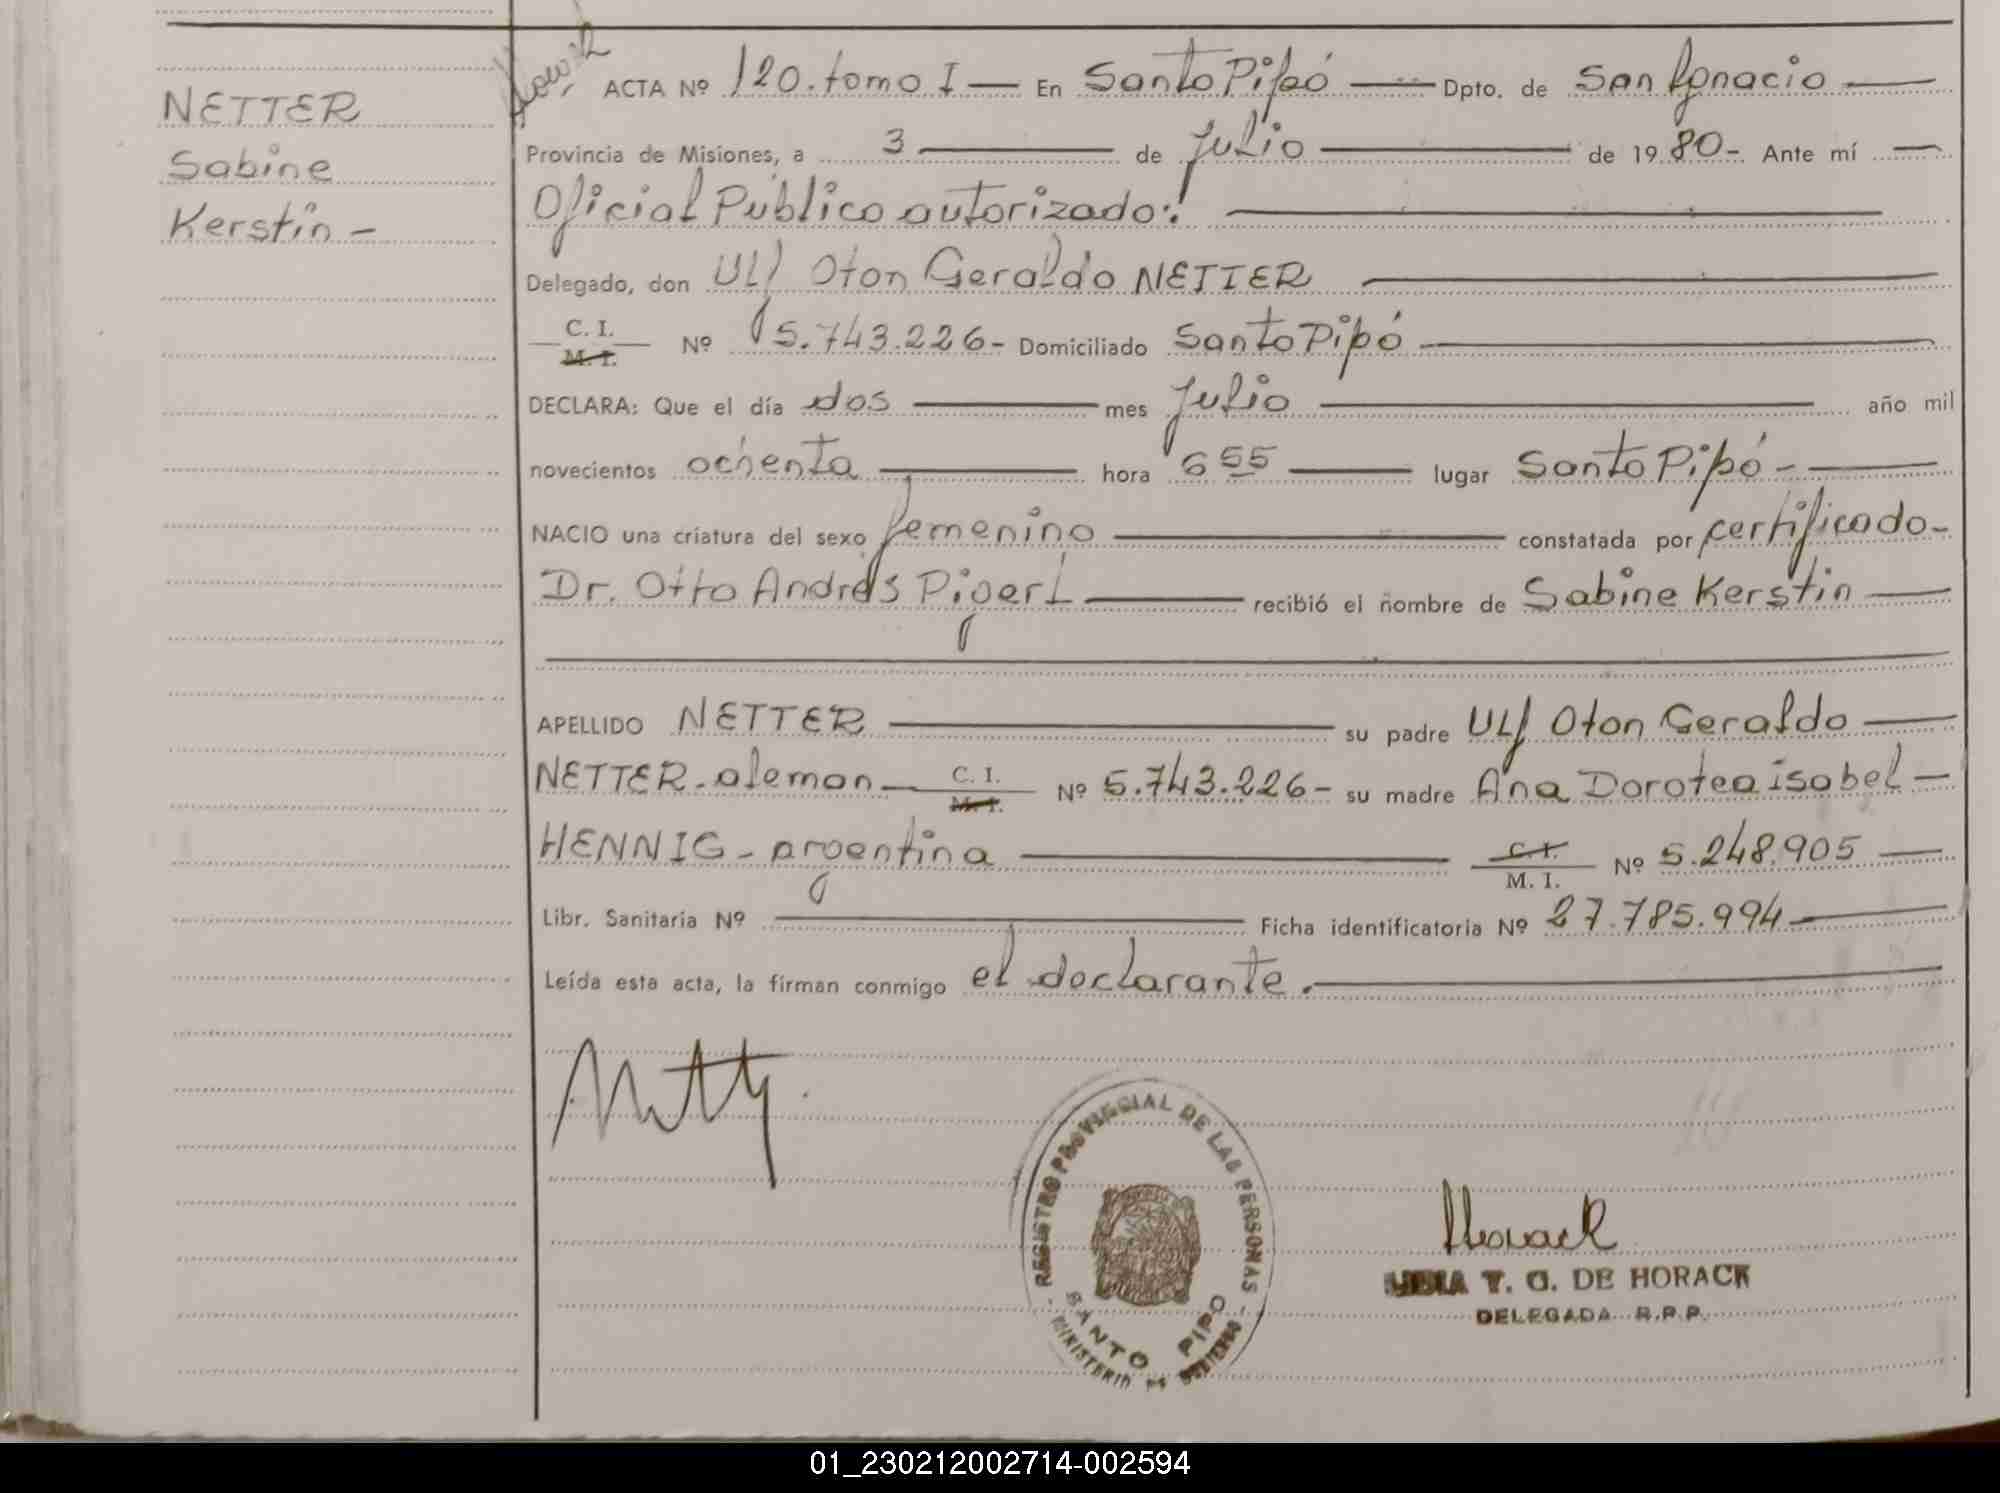 NETTER
Sabine
Kerstin -
ACTA Nº 120. tomo I — En Santo Pipó — Dpto. de San Ignacio —
Provincia de Misiones, a 3 — de Julio — de 1980 - Ante mí —
Oficial Público autorizado: —
Delegado, don Ulf Oton Geraldo NETTER —
C. I. M. I. Nº 5.743.226 - Domiciliado Santo Pipó —
DECLARA: Que el día dos — mes Julio — año mil
novecientos ochenta — hora 6 55 — lugar Santo Pipó - —
NACIO una criatura del sexo femenino — constatada por certificado -
Dr. Otto Andrés Pigerl — recibió el nombre de Sabine Kerstin —
APELLIDO NETTER — su padre Ulf Oton Geraldo —
NETTER - aleman — C. I. M. I. Nº 5.743.226 - su madre Ana Dorotea isabel —
HENNIG - argentina — C. I. M. I. Nº 5.248.905 —
Libr. Sanitaria Nº — Ficha identificatoria Nº 27.785.994 —
Leída esta acta, la firman conmigo el declarante. —
REGISTRO PROVINCIAL DE LAS PERSONAS
SANTO PIPO
MINISTERIO DE GOBIERNO
Horack
T. G. DE HORACK
DELEGADA R.P.P.
01_230212002714-002594